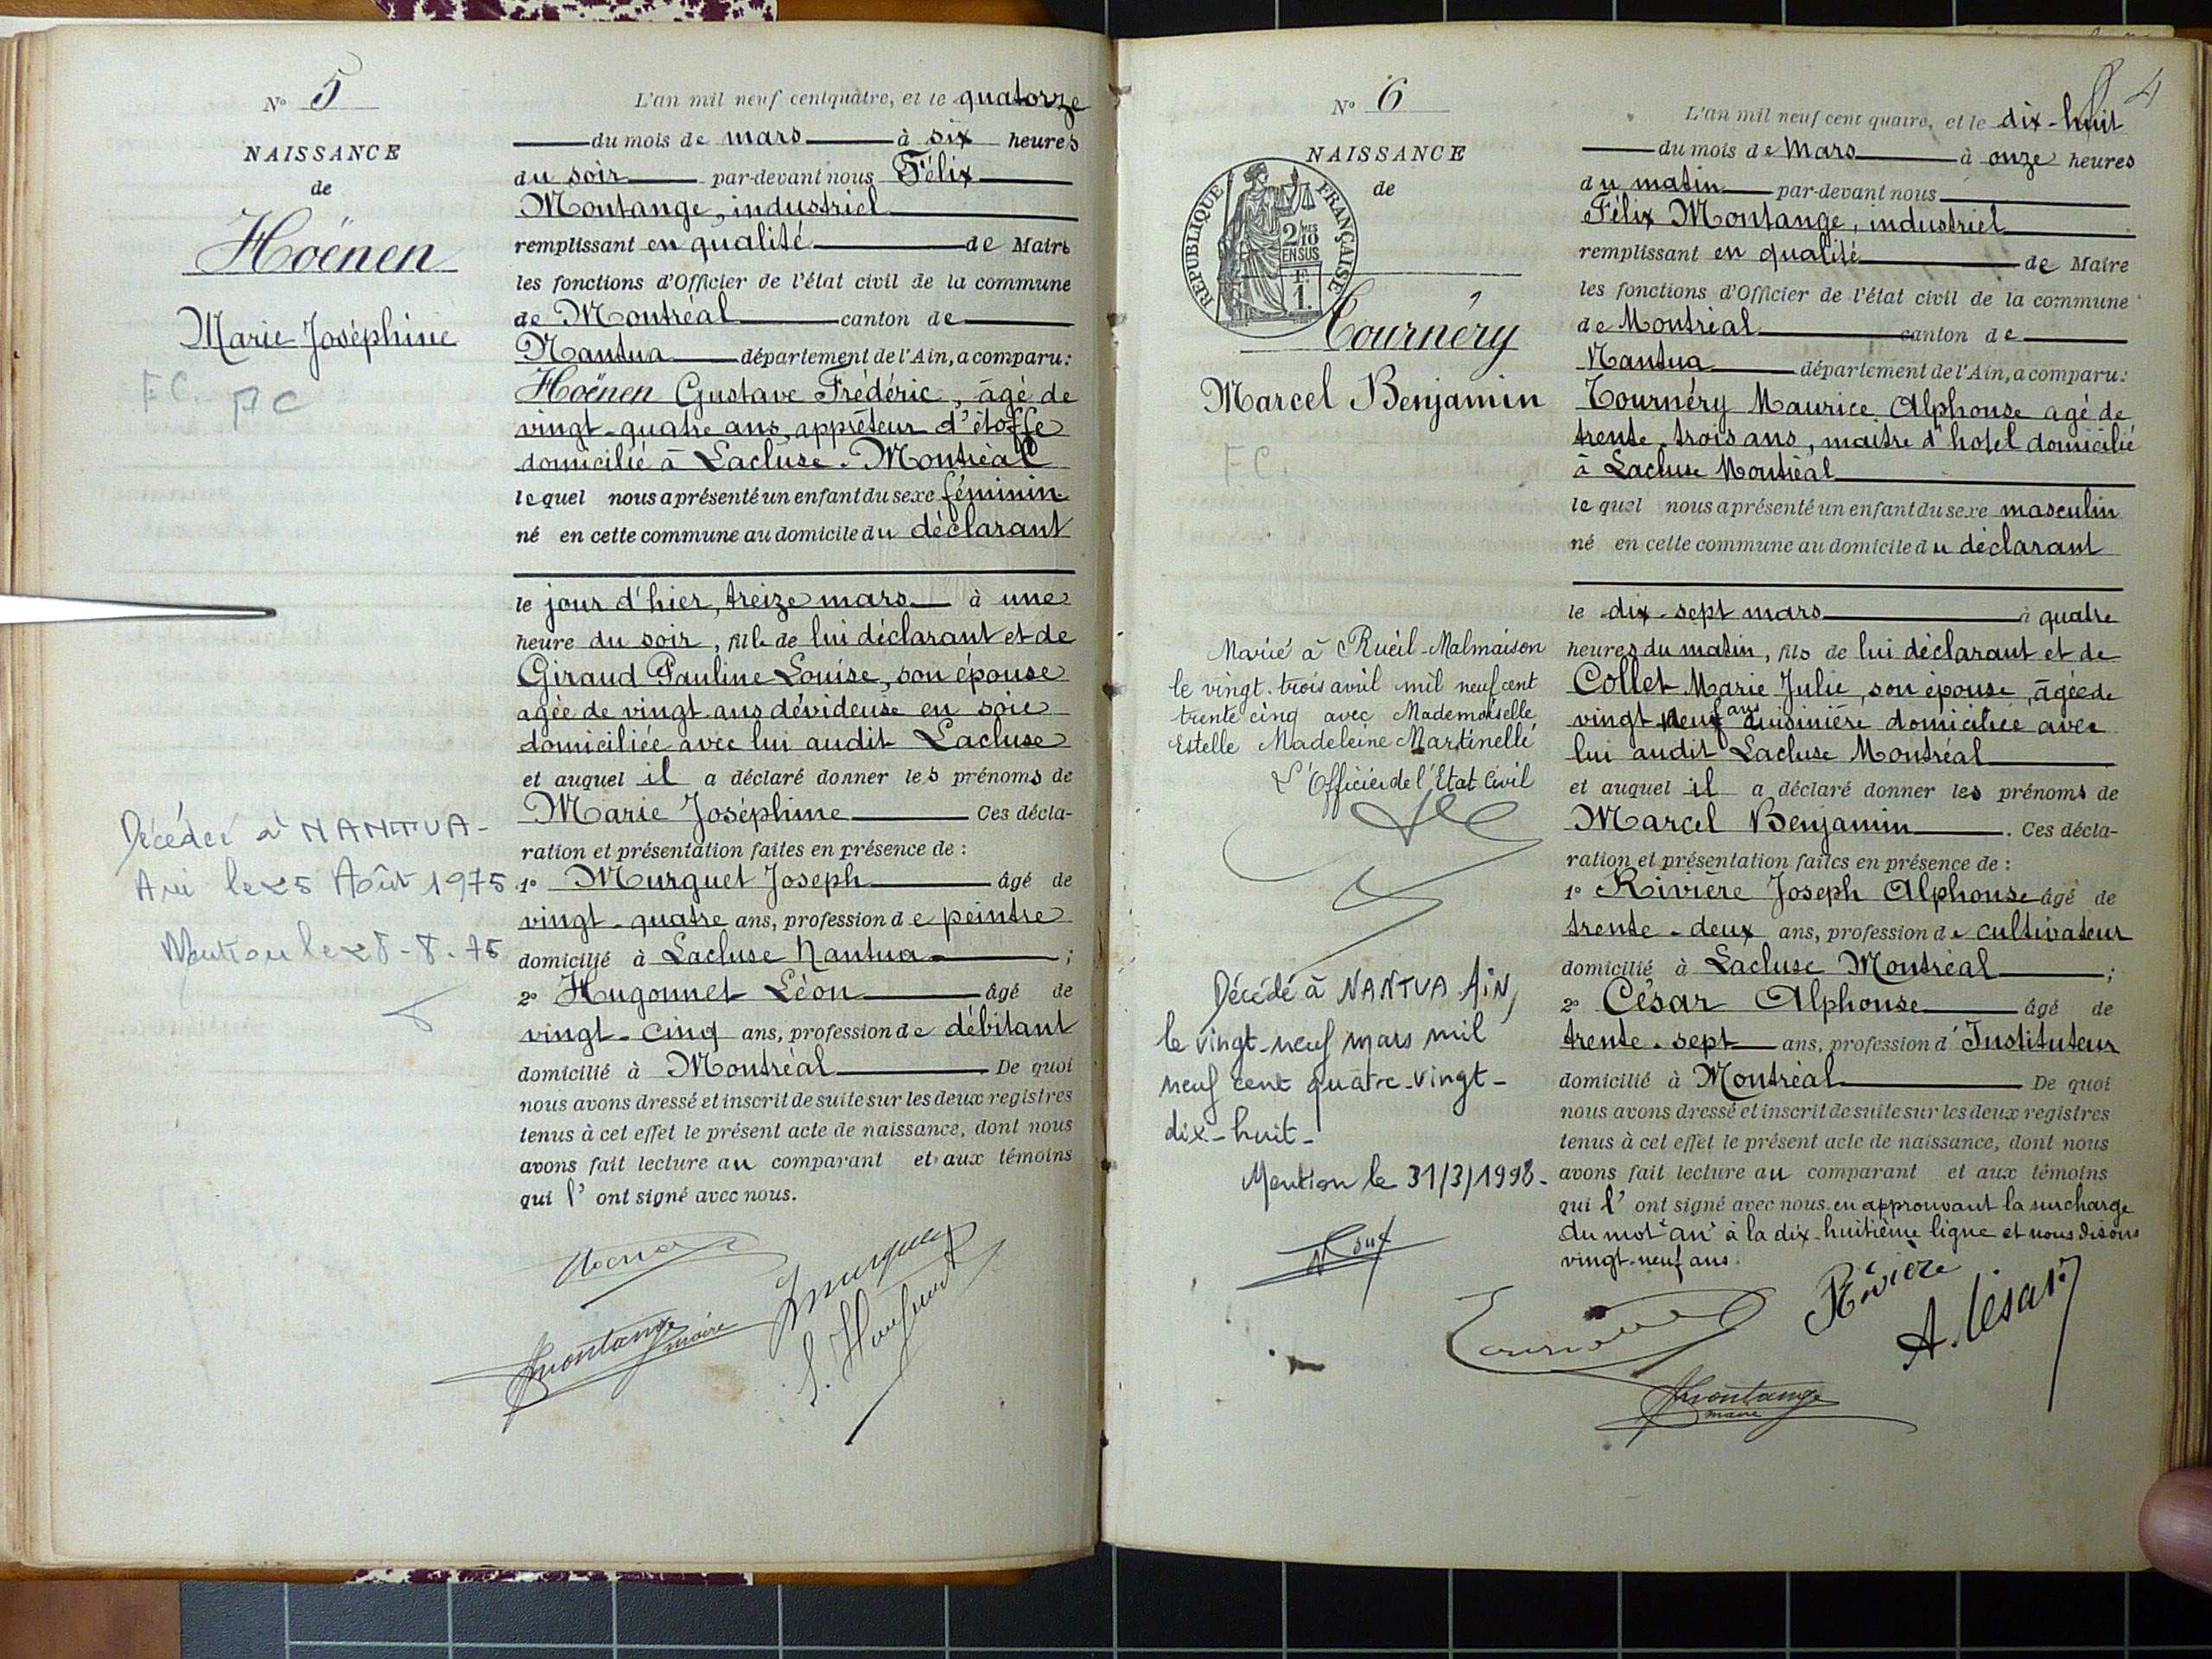 N° 5
NAISSANCE
de
Hoënen
Marie Joséphine
F.C. AC
Décédée à NANTUA-
Ain le 25 Août 1975
Mention le 28-8-75
L'an mil neuf cent quatre, et le quatorze
du mois de mars à six heures
du soir par-devant nous Félix
Montange, industriel
remplissant en qualité de Maire
les fonctions d'Officier de l'état civil de la commune
de Montréal canton de
Nantua département de l'Ain, a comparu:
Hoënen Gustave Frédéric, âgé de
vingt-quatre ans, apprêteur d'étoffe
domicilié à Lacluse-Montréal
lequel nous a présenté un enfant du sexe féminin
né en cette commune au domicile du déclarant
le jour d'hier, treize mars à une
heure du soir, fille de lui déclarant et de
Giraud Pauline Louise, son épouse
agée de vingt ans dévideuse en soie
domiciliée avec lui audit Lacluse
et auquel il a déclaré donner les prénoms de
Marie Joséphine Ces décla-
ration et présentation faites en présence de :
1° Murguet Joseph âgé de
vingt-quatre ans, profession de peintre
domicilié à Lacluse Nantua ;
2° Hugonnet Léon âgé de
vingt-cinq ans, profession de débitant
domicilié à Montréal De quoi
nous avons dressé et inscrit de suite sur les deux registres
tenus à cet effet le présent acte de naissance, dont nous
avons fait lecture au comparant et aux témoins
qui l'ont signé avec nous.
Montange
maire
4
N° 6
NAISSANCE
de
RÉPUBLIQUE FRANÇAISE
2/10
EN SUS
F.
1.
Tournéry
Marcel Benjamin
F.C.
Marié à Rueil-Malmaison
le vingt-trois avril mil neuf cent
trente cinq avec Mademoiselle
Estelle Madeleine Martinelli
L'Officier de l'Etat Civil
Décédé à NANTUA AIN,
le vingt-neuf mars mil
neuf cent quatre-vingt-
dix-huit-
Mention le 31/3/1998-
L'an mil neuf cent quatre, et le dix-huit
du mois de Mars à onze heures
du matin par-devant nous
Félix Montange, industriel
remplissant en qualité de Maire
les fonctions d'Officier de l'état civil de la commune
de Montréal canton de
Nantua département de l'Ain, a comparu:
Tournéry Maurice Alphonse agé de
trente-trois ans, maitre d'hotel domicilié
à Lacluse Montréal
lequel nous a présenté un enfant du sexe masculin
né en cette commune au domicile du déclarant
le dix-sept mars à quatre
heures du matin, fils de lui déclarant et de
Collet Marie Julie, son épouse, âgée de
vingt neuf ans cuisinière domiciliée avec
lui audit Lacluse Montréal
et auquel il a déclaré donner les prénoms de
Marcel Benjamin. Ces décla-
ration et présentation faites en présence de :
1° Rivière Joseph Alphonse âgé de
trente-deux ans, profession de cultivateur
domicilié à Lacluse Montréal ;
2° César Alphonse âgé de
trente-sept ans, profession d'Instituteur
domicilié à Montréal De quoi
nous avons dressé et inscrit de suite sur les deux registres
tenus à cet effet le présent acte de naissance, dont nous
avons fait lecture au comparant et aux témoins
qui l'ont signé avec nous en approuvant la surcharge
du mot "an" à la dix-huitième ligne et nous disons
vingt-neuf ans.
Rivière
A. César
Montange
maire